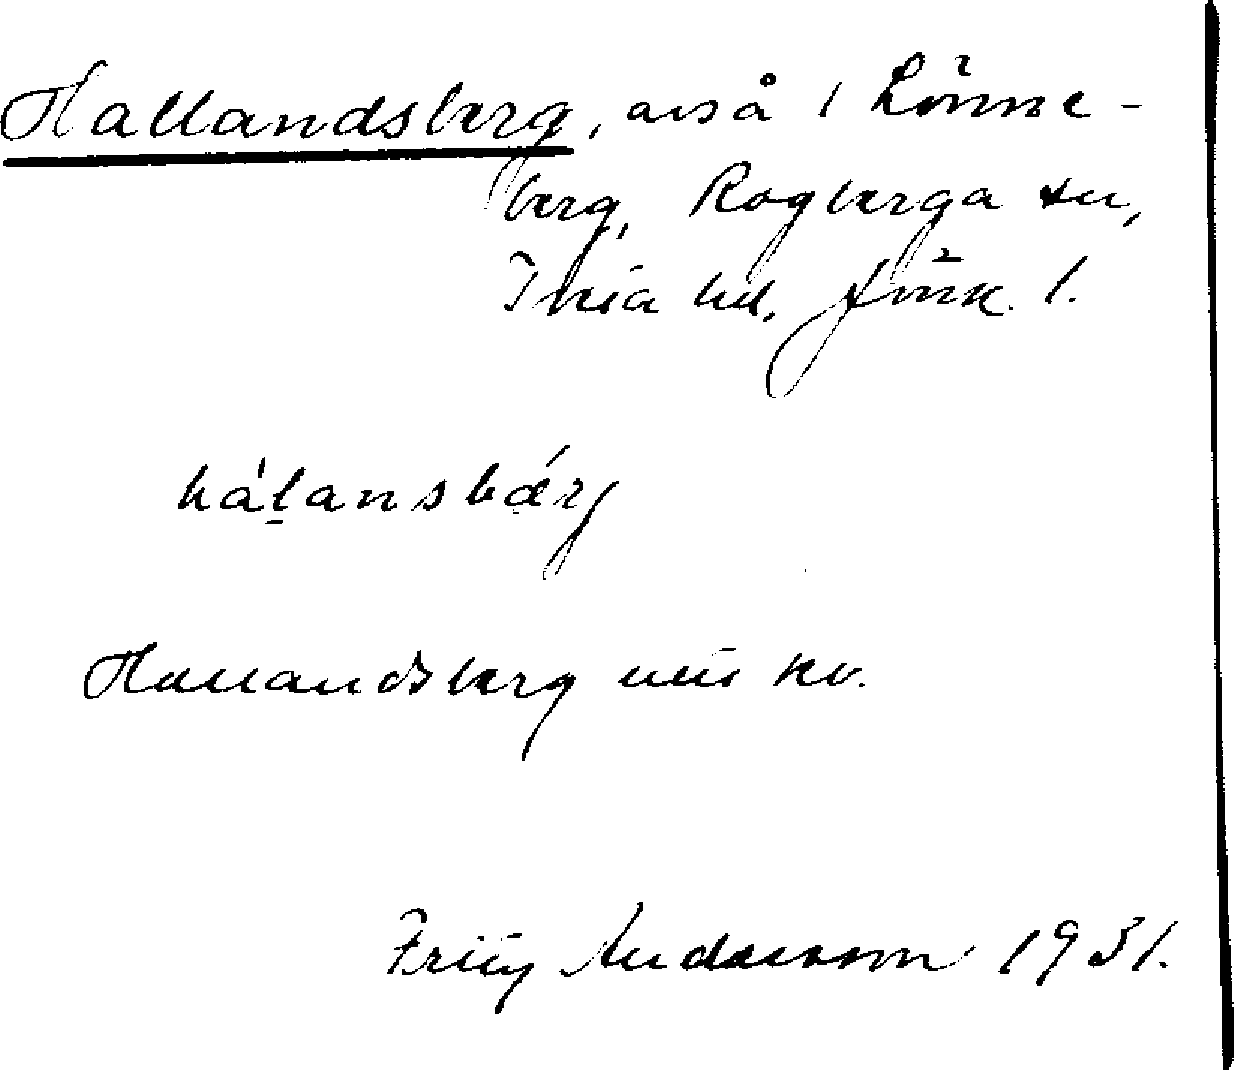 Hallandsberg, avs å i Lönne-
berg, Rogberga sn,
Tveta hd. Jönk. l.
hálansbǽrg
Hallandsberg
Andersson 1931.